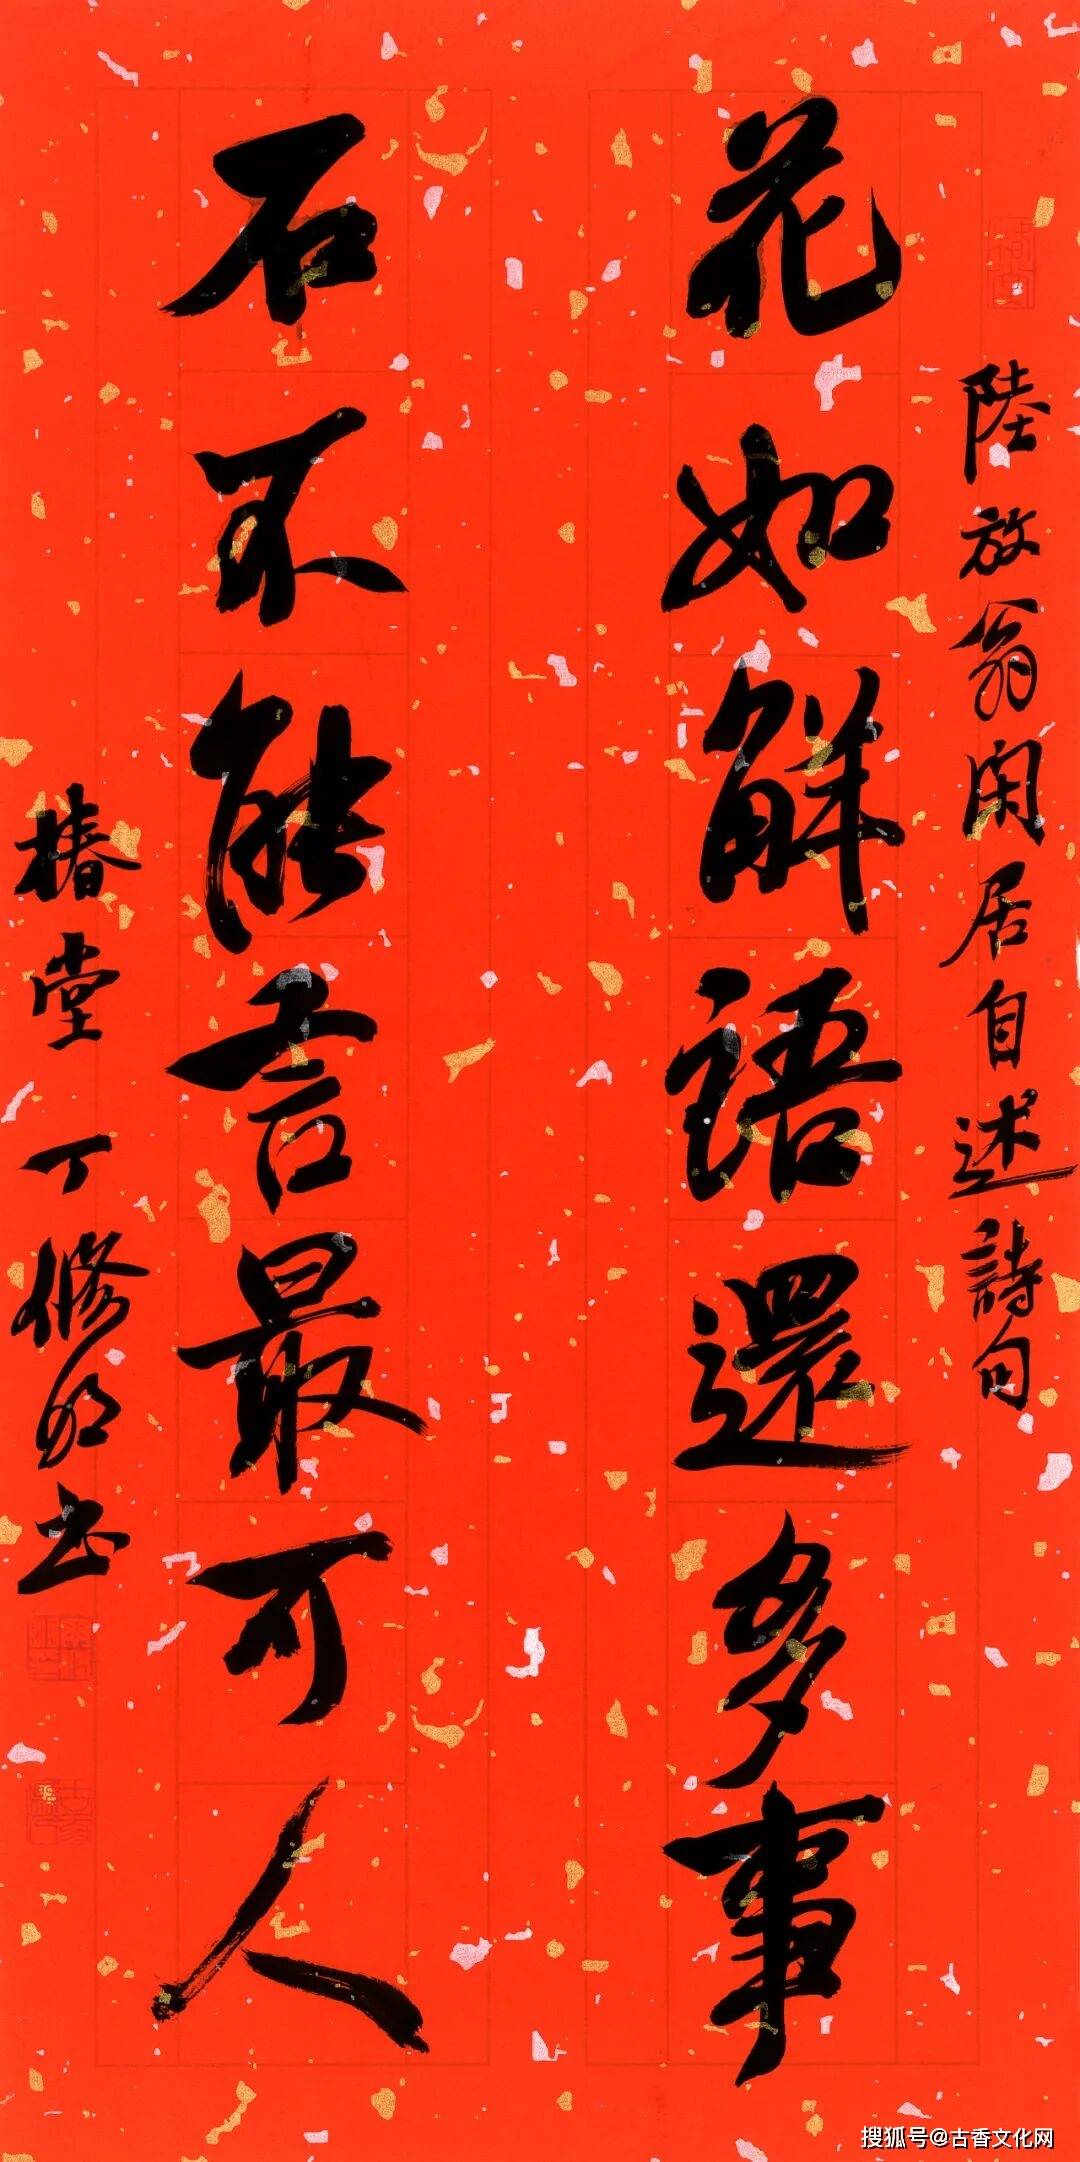 陸放翁闲居自述詩句
花如解語還多事
石不能言最可人
椿堂丁修明书
搜狐号@古香文化网